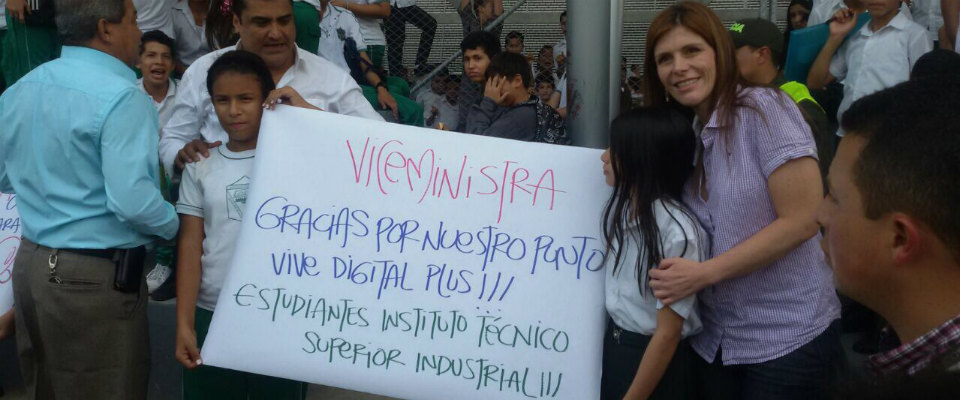 VICEMINISTRA
GRACIAS POR NUESTRO PUNTO
VIVE DIGITAL PLUS!!!
ESTUDIANTES INSTITUTO TÉCNICO
SUPERIOR INDUSTRIAL!!!